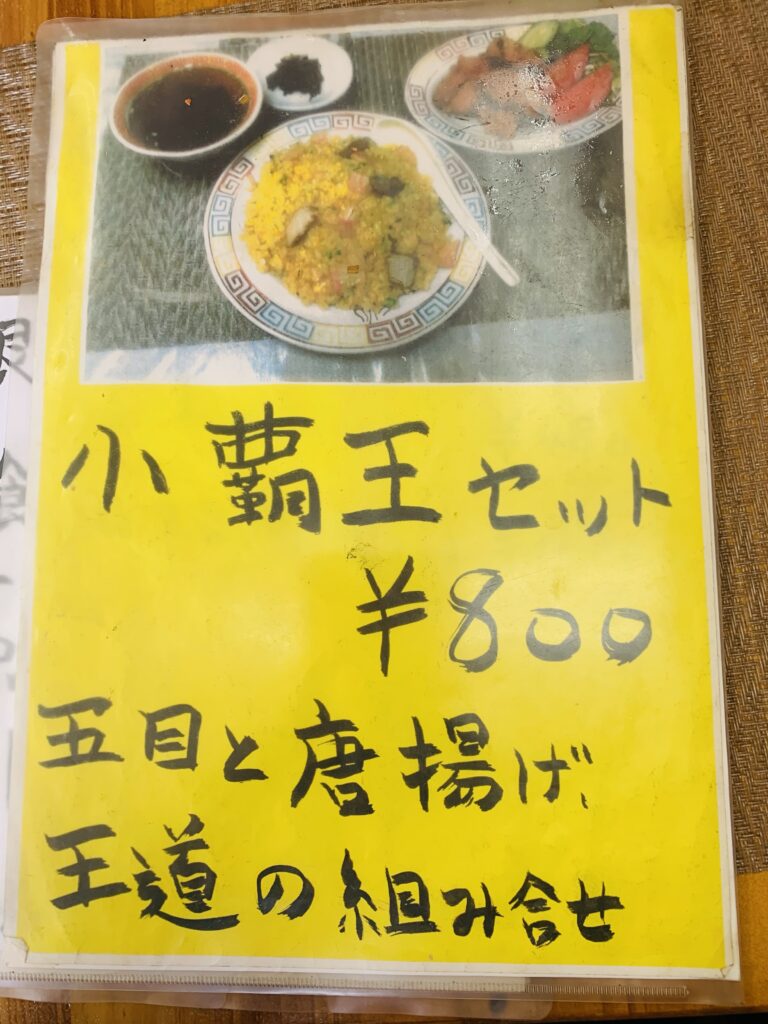 小覇王セット
¥800
五目と唐揚げ、
王道の組み合せ